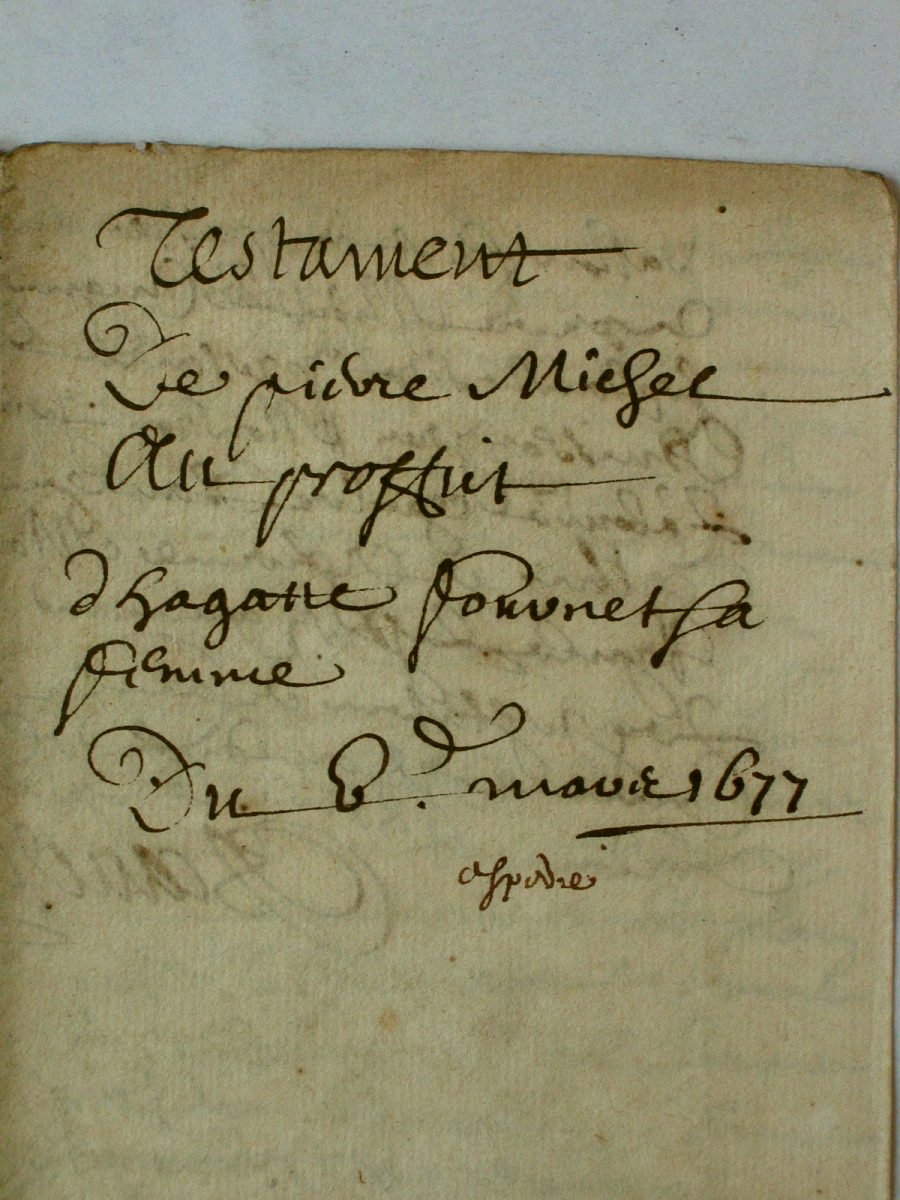 Testament
De pierre Michel
Au proffict
dhagatte fournet sa
femme
Du 8.e mars 1677